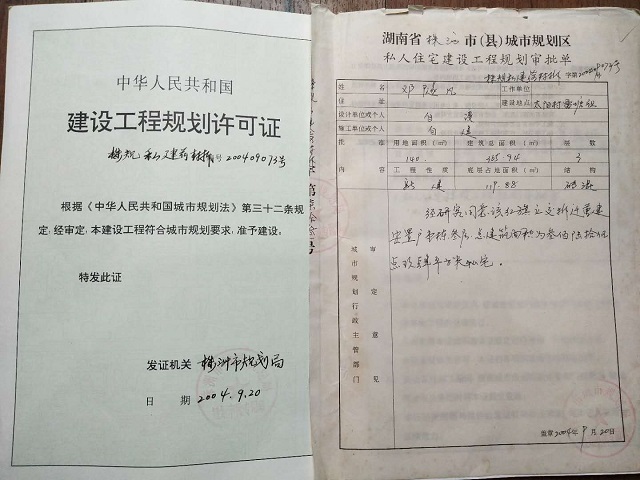 中华人民共和国
建设工程规划许可证
株规 私建 号200409073号
根据《中华人民共和国城市规划法》第三十二条规
定,经审定,本建设工程符合城市规划要求,准予建设。
特发此证
发证机关 株洲市规划局
日 期 2004.9.20
湖南省 株洲 市(县)城市规划区
私人住宅建设工程规划审批单
字第200409073号
姓 名 邓 工作单位
住 址 建设地点 太阳村
设计单位或个人 自
施工单位或个人 自建
批准内容 用地面积(㎡) 建筑总面积(㎡) 层数
140 385.94 3
工程性质 底层占地面积(㎡) 结构
新建 119.88 砖混
城市规划行政主管部门
审定意见
经研究同意该 拆迁重建
安置 总建筑面积为叁佰 拾伍
点玖肆平方米 。
签章2004年9月20日